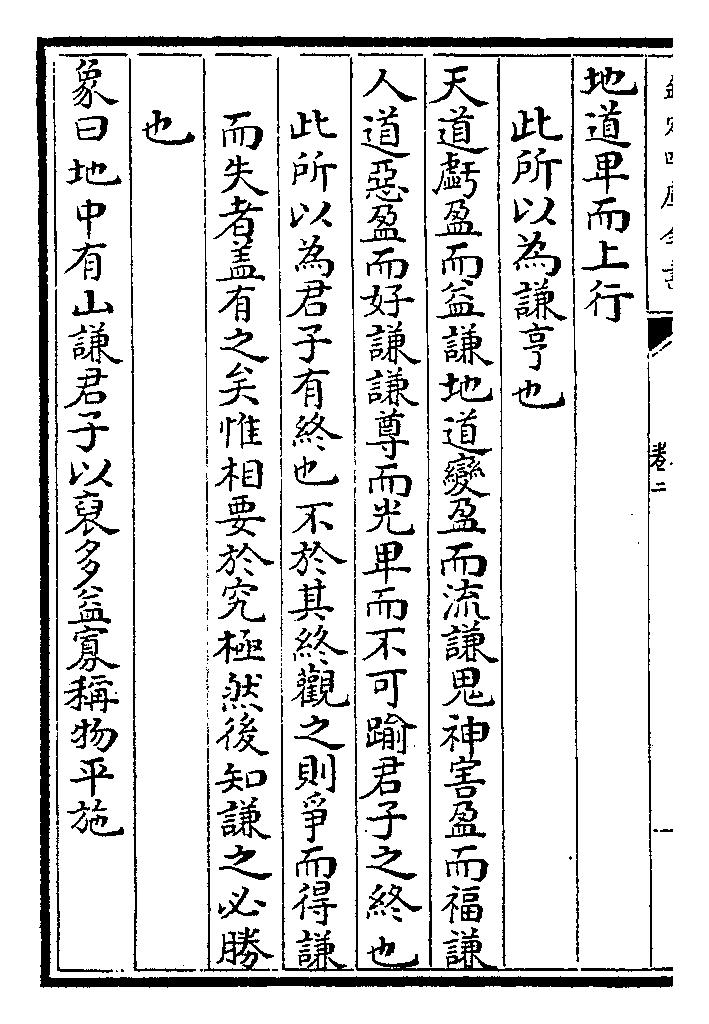 欽定四庫全書
卷二
地道卑而上行
此所以為謙亨也
天道虧盈而益謙地道變盈而流謙鬼神害盈而福謙
人道惡盈而好謙謙尊而光卑而不可踰君子之終也
此所以為君子有終也不於其終觀之則爭而得謙
而失者盖有之矣惟相要於究極然後知謙之必勝
也
象曰地中有山謙君子以裒多益寡稱物平施